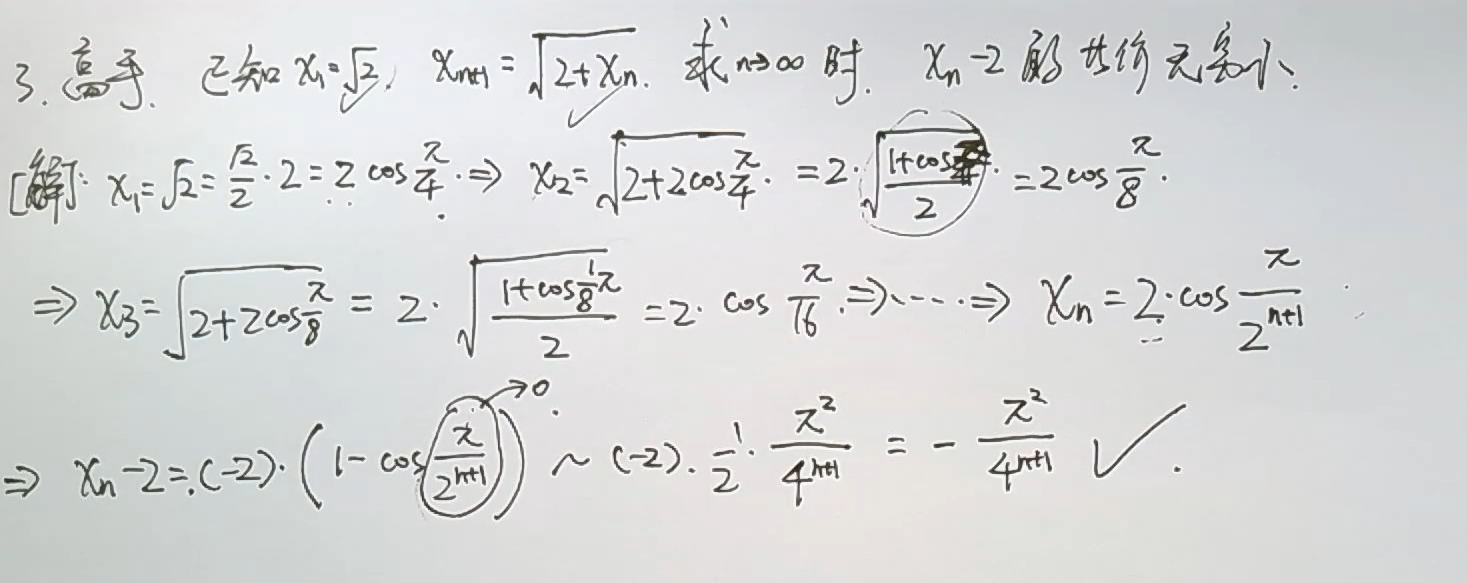 3. 高手. 已知 x₁=√2, xₙ₊₁=√(2+xₙ). 求 n→∞ 时. xₙ-2 的 等价无穷小.
[解]: x₁=√2=√2/2·2=2cos π/4.⇒ x₂=√(2+2cos π/4). =2·√((1+cos π/4)/2). =2cos π/8.
⇒ x₃=√(2+2cos π/8) = 2·√((1+cos 1/8 π)/2) =2·cos π/16.⇒····⇒ xₙ=2·cos π/2ⁿ⁺¹
→0.
⇒ xₙ-2=(-2)·(1-cos π/2ⁿ⁺¹) ~ (-2)·1/2·π²/4ⁿ⁺¹ = -π²/4ⁿ⁺¹ ✓.